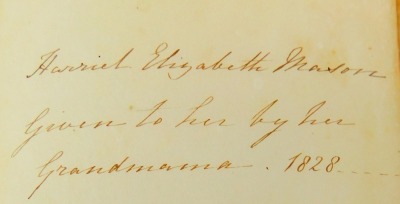 Harriet Elizabeth Mason
Given to her by her
Grandmama . 1828.....